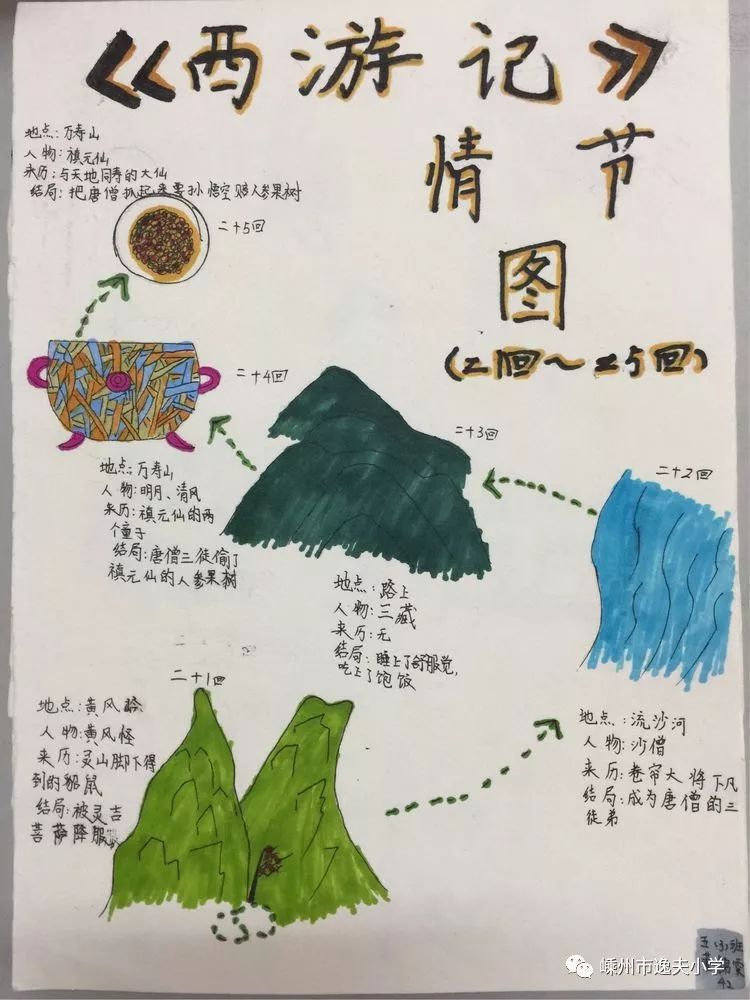 《西游记》
情节
图
(21回～25回)
地点:万寿山
人物:禛元仙
来历:与天地同寿的大仙
结局:把唐僧抓起来要孙悟空赔人参果树
二十5回
二十4回
地点:万寿山
人物:明月、清风
来历:禛元仙的两
个童子
结局:唐僧三徒偷了
禛元仙的人参果树
二十3回
地点:路上
人物:三藏
来历:无
结局:睡上了舒服觉,
吃上了饱饭
二十2回
地点:流沙河
人物:沙僧
来历:卷帘大将下凡
结局:成为唐僧的三
徒弟
二十1回
地点:黄风岭
人物:黄风怪
来历:灵山脚下得
到的貂鼠
结局:被灵吉
菩萨降服
五(3)班
42
嵊州市逸夫小学